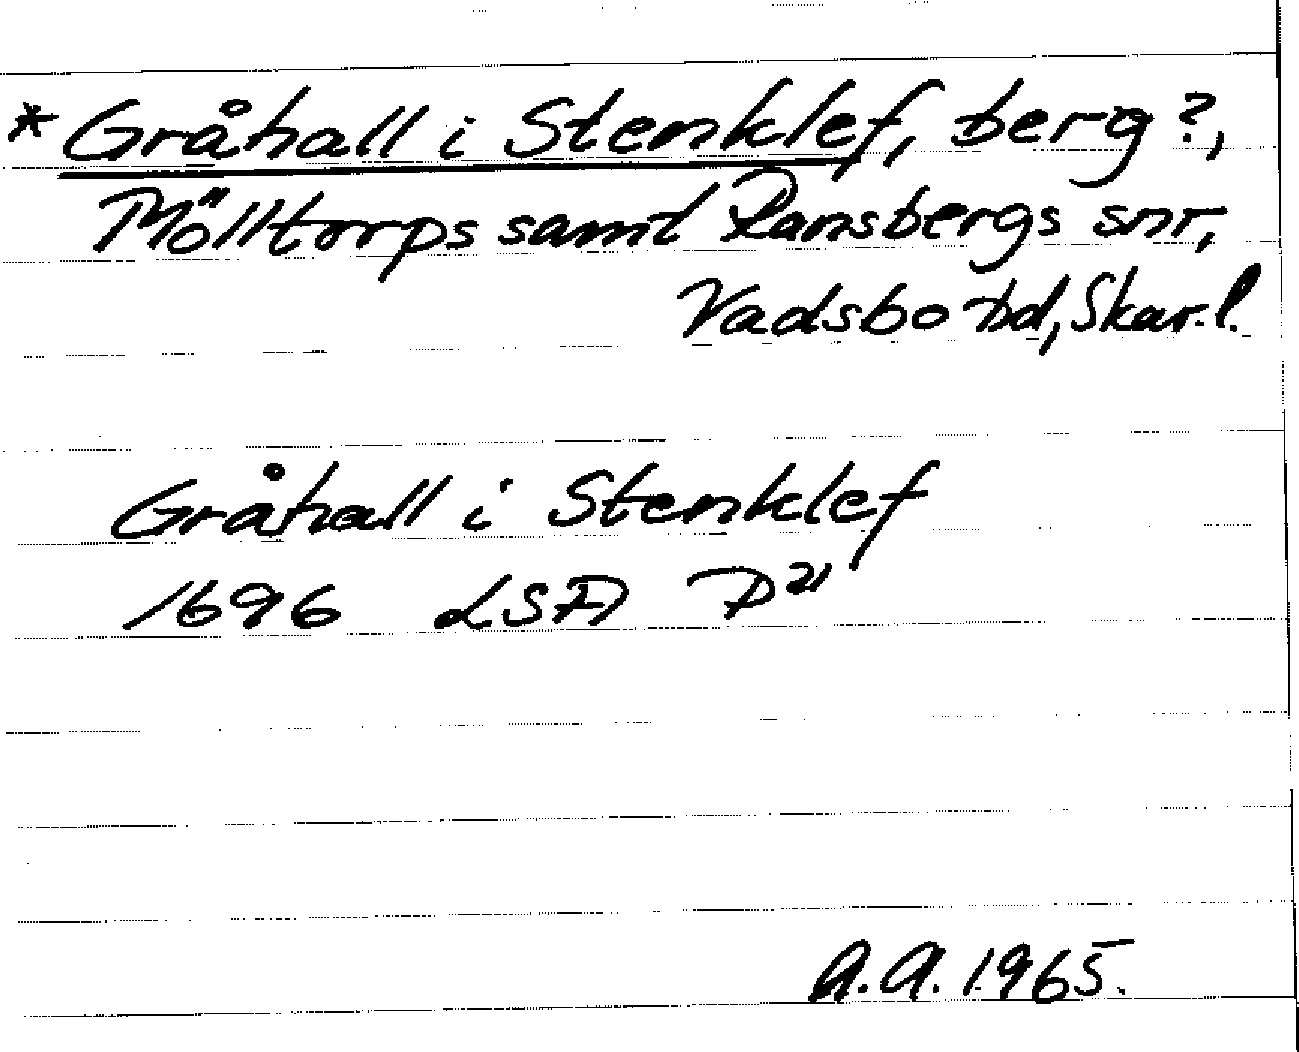 *Gråhall i Stenklef, berg?,
Mölltorps samt Ransbergs snr,
Vadsbo hd, Skar. l.
Gråhall i Stenklef
1696 LSA P21
A.A. 1965.